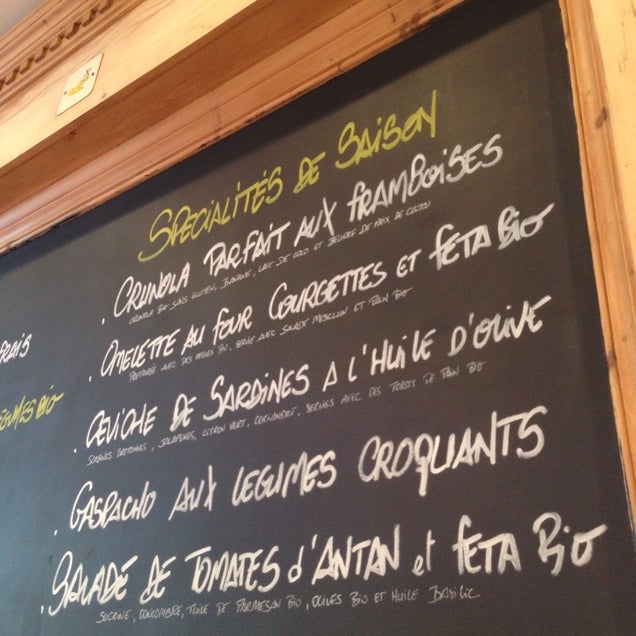 SPECIALITÉS DE SAISON
. CRUNOLA PARFAIT AUX FRAMBOISES
CRUNOLA BIO SANS GLUTEN, BANANE, LAIT DE COCO ET BEURRE DE NOIX DE CAJOU
. OMELETTE AU FOUR COURGETTES ET FETA BIO
PRÉPARÉE AVEC DES ŒUFS BIO, SERVIE AVEC SALADE MESCLUN ET PAIN BIO
. CEVICHE DE SARDINES A L'HUILE D'OLIVE
SARDINES BRETONNES, JALAPEÑOS, CITRON VERT, CORIANDRE, SERVIES AVEC DES TOASTS DE PAIN BIO
. GASPACHO AUX LEGUMES CROQUANTS
. SALADE DE TOMATES d'ANTAN et FETA Bio
SUCRINE, CONCOMBRE, TUILE DE PARMESAN BIO, OLIVES BIO ET HUILE BASILIC
FRAIS
BIO